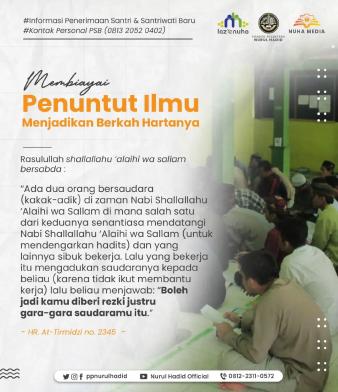 #Informasi Penerimaan Santri & Santriwati Baru
#Kontak Personal PSB (0813 2052 0402)
laz nuha
PONDOK PESANTREN
NURUL HADID
NUHA MEDIA
Membiayai
Penuntut Ilmu
Menjadikan Berkah Hartanya
Rasulullah shallallahu 'alaihi wa sallam
bersabda :
"Ada dua orang bersaudara
(kakak-adik) di zaman Nabi Shallallahu
'Alaihi wa Sallam di mana salah satu
dari keduanya senantiasa mendatangi
Nabi Shallallahu 'Alaihi wa Sallam (untuk
mendengarkan hadits) dan yang
lainnya sibuk bekerja. Lalu yang bekerja
itu mengadukan saudaranya kepada
beliau (karena tidak ikut membantu
kerja) lalu beliau menjawab: "Boleh
jadi kamu diberi rezki justru
gara-gara saudaramu itu."
- HR. At-Tirmidzi no. 2345 -
ppnurulhadid
Nurul Hadid Official
0812-2311-0572